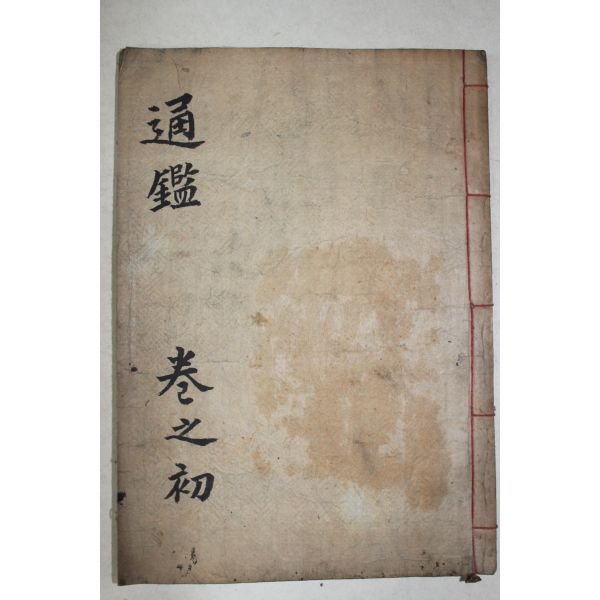 通鑑
卷之初